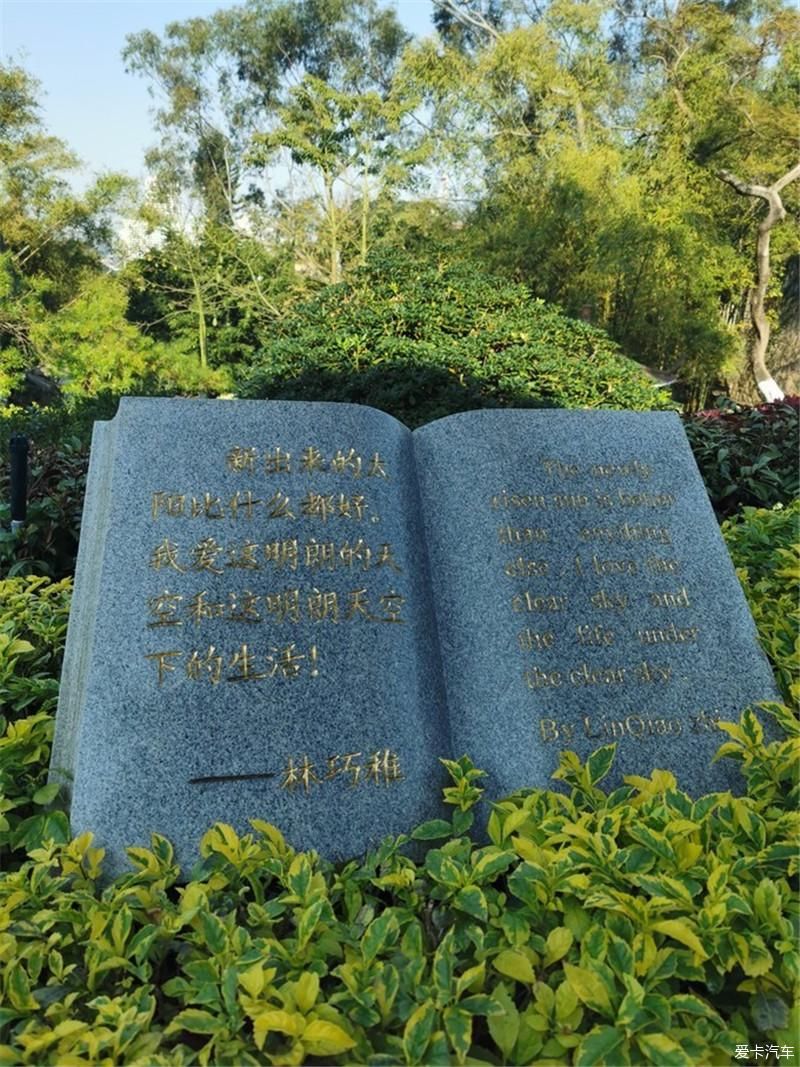 新出来的太
阳比什么都好。
我爱这明朗的天
空和这明朗天空
下的生活!
——林巧稚
The newly
risen sun is better
than anything
else , I love the
clear sky and
the life under
the clear sky .
By LinQiao zhi
爱卡汽车